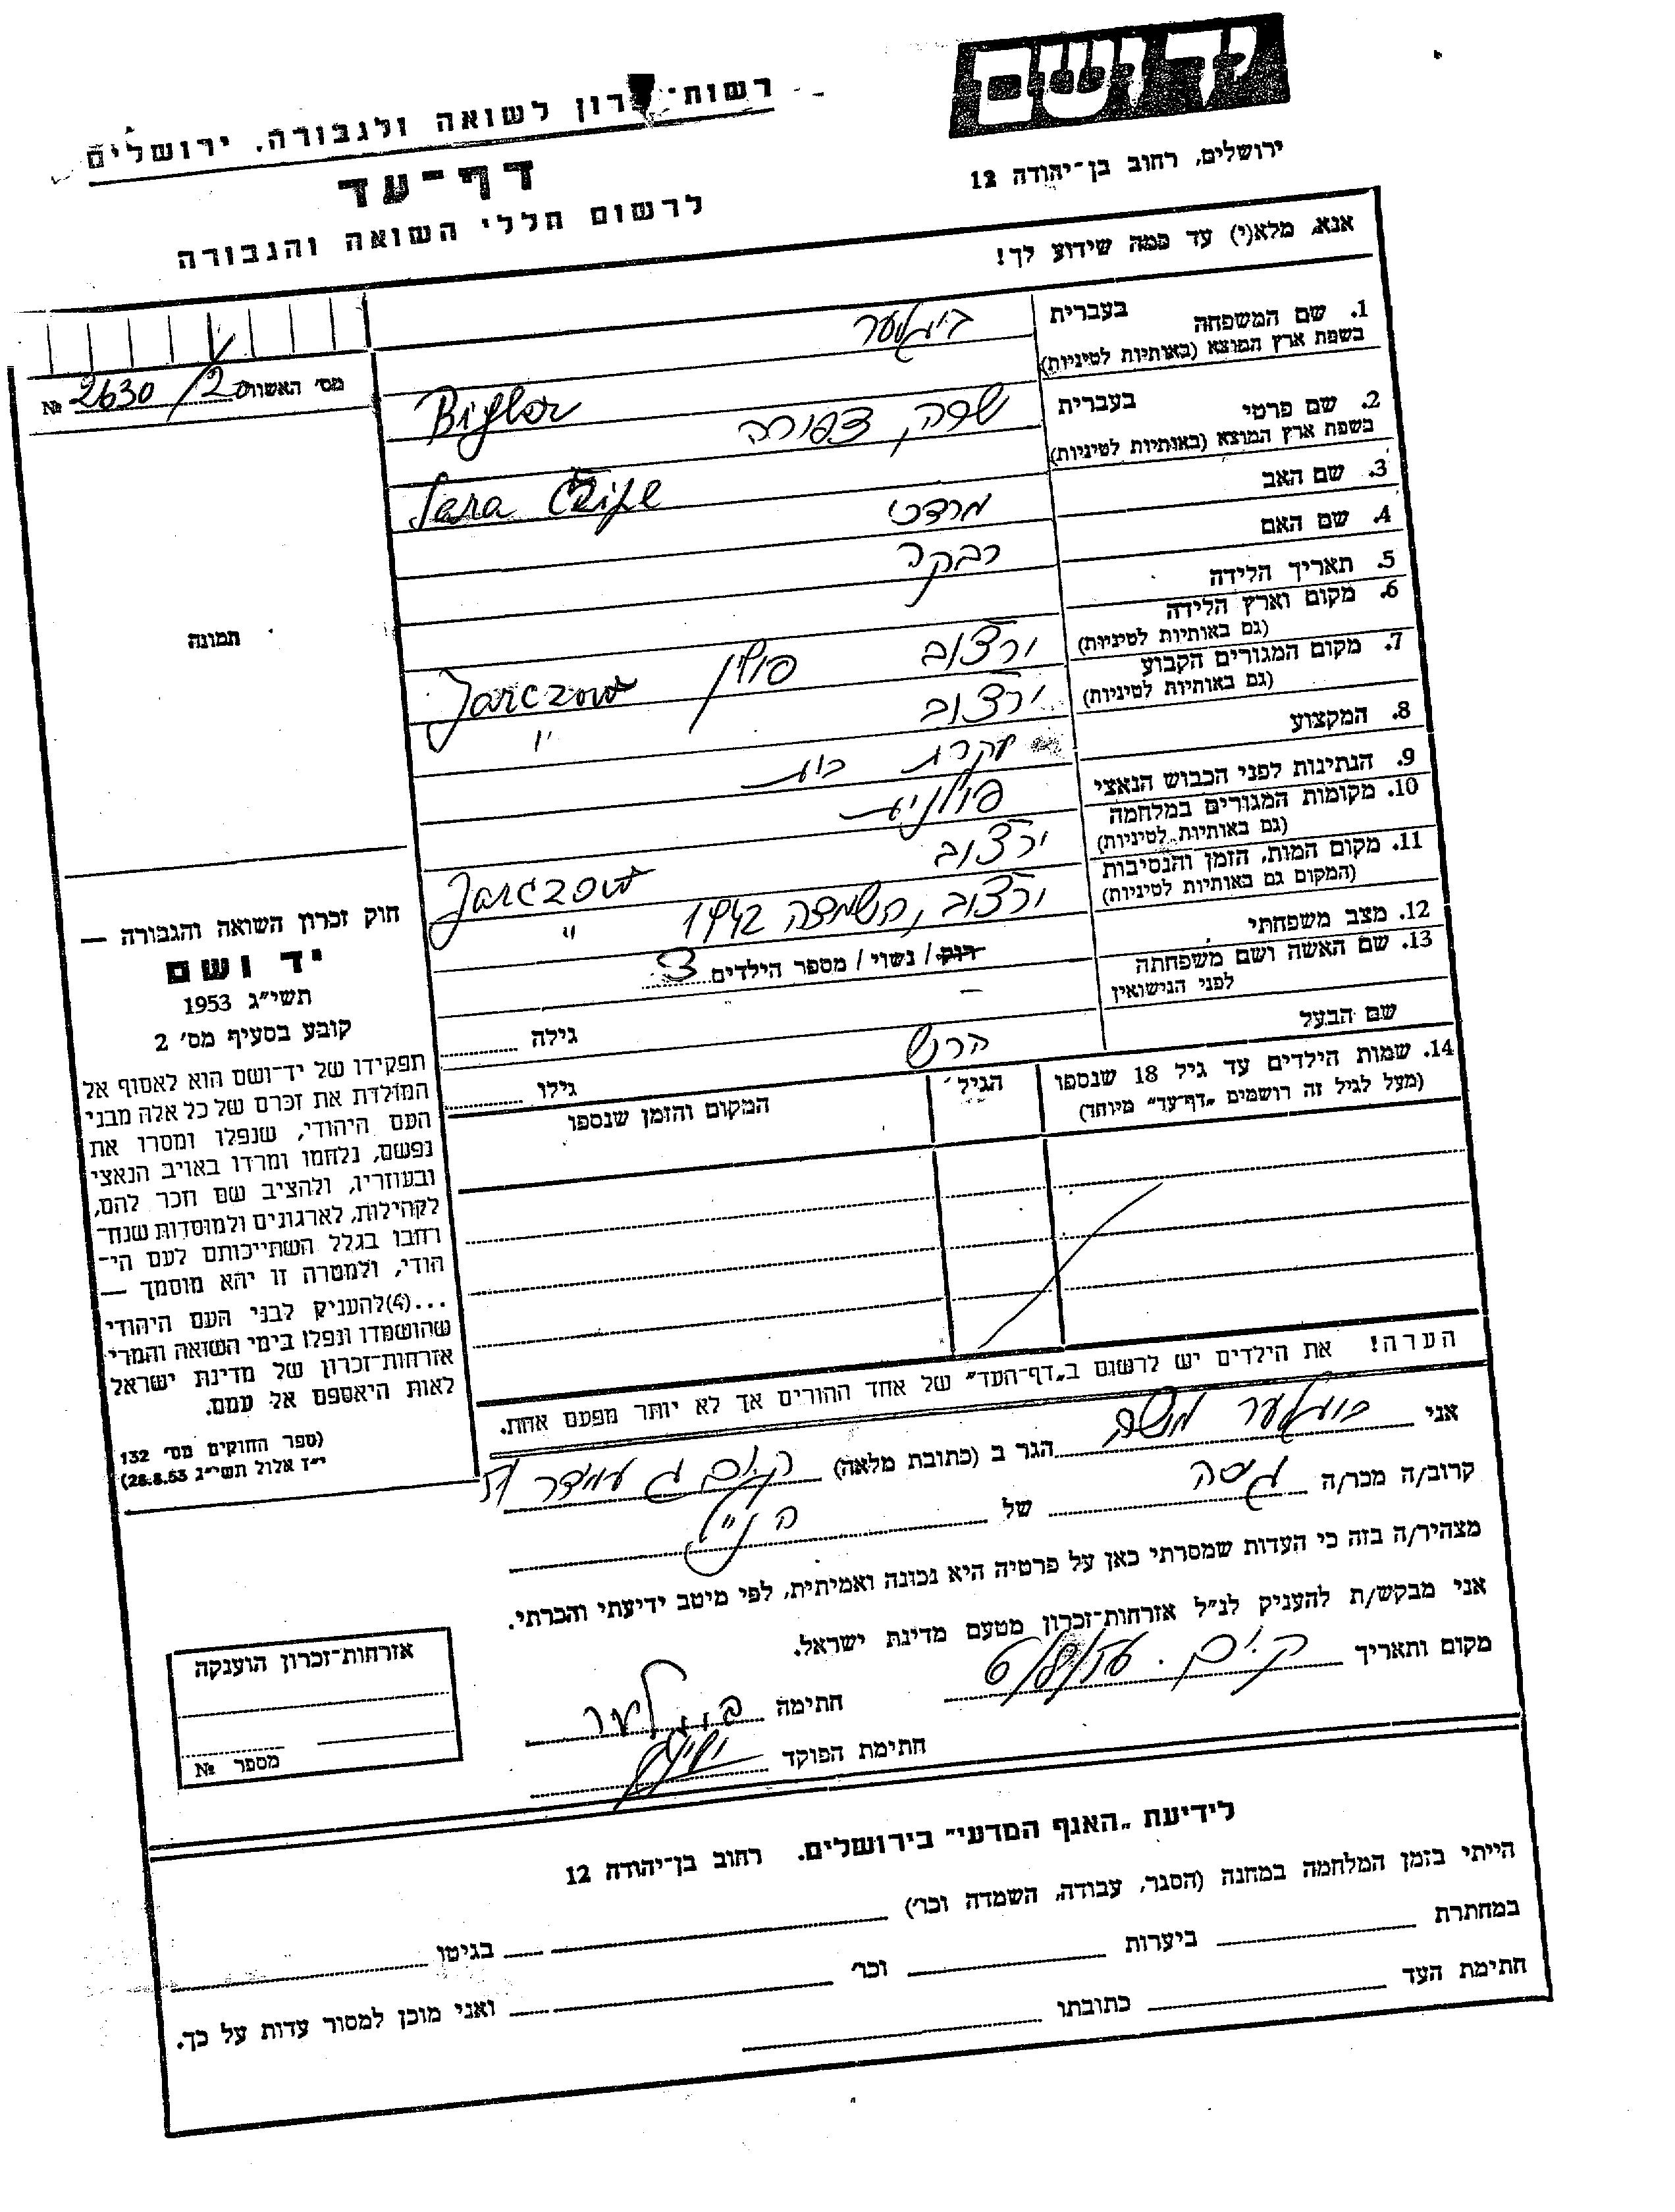 יד ושם
ירושלים, רחוב בן־יהודה 12
רשות־ לשואה ולגבורה. ירושלים
דף־עד
לרשום חללי השואה והגבורה
אנא, מלא(י) עד כמה שידוע לך!
1. שם המשפחה בעברית ביגלער
בשפת ארץ המוצא (באותיות לטיניות) Bigler
2. שם פרטי בעברית שרה צפורה
בשפת ארץ המוצא (באותיות לטיניות) Sara
3. שם האב מרדכי
4. שם האם רבקה
5. תאריך הלידה
6. מקום וארץ הלידה ירצוב פולין Jarczow
(גם באותיות לטיניות)
7. מקום המגורים הקבוע ירצוב "
(גם באותיות לטיניות)
8. המקצוע עקרת בית
9. הנתינות לפני הכבוש הנאצי פולנית
10. מקומות המגורים במלחמה ירצוב Jarczow
(גם באותיות לטיניות)
11. מקום המות, הזמן והנסיבות ירצוב, השמדה 1942 "
(המקום גם באותיות לטיניות)
12. מצב משפחתי רוק / נשוי / מספר הילדים 3
13. שם האשה ושם משפחתה – גילה
לפני הנישואין
שם הבעל הרש גילו
14. שמות הילדים עד גיל 18 שנספו הגיל המקום והזמן שנספו
(מעל לגיל זה רושמים "דף־עד" מיוחד)
הערה! את הילדים יש לרשום ב"דף־העד" של אחד ההורים אך לא יותר מפעם אחת.
מס' האשור 2630/20 №
תמונה
חוק זכרון השואה והגבורה —
יד ושם
תשי"ג 1953
קובע בסעיף מס' 2
תפקידו של יד־ושם הוא לאסוף אל
המולדת את זכרם של כל אלה מבני
העם היהודי, שנפלו ומסרו את
נפשם, נלחמו ומרדו באויב הנאצי
ובעוזריו, ולהציב שם וזכר להם,
לקהילות, לארגונים ולמוסדות שנח־
רחבו בגלל השתייכותם לעם הי־
הודי, ולמטרה זו יהא מוסמך —
...(4)להעניק לבני העם היהודי
שהושמדו ונפלו בימי השואה והמרי
אזרחות־זכרון של מדינת ישראל
לאות היאספם אל עמם.
(ספר החוקים מס' 132
י"ז אלול תשי"ג 28.8.53)
אני ביגלער משה הגר ב (כתובת מלאה) ק. ים ג
קרוב/ה מכר/ה גיסה של הנ"ל
מצהיר/ה בזה כי העדות שמסרתי כאן על פרטיה היא נכונה ואמיתית, לפי מיטב ידיעתי והכרתי.
אני מבקש/ת להעניק לנ"ל אזרחות־זכרון מטעם מדינת ישראל.
מקום ותאריך ק. ים. חתימה ביגלער
חתימת הפוקד
אזרחות־זכרון הוענקה
מספר №
לידיעת "האגף המדעי" בירושלים. רחוב בן־יהודה 12
הייתי בזמן המלחמה במחנה (הסגר, עבודה, השמדה וכו') בגיטו
במחתרת ביערות וכו' ואני מוכן למסור עדות על כך.
חתימת העד כתובתו